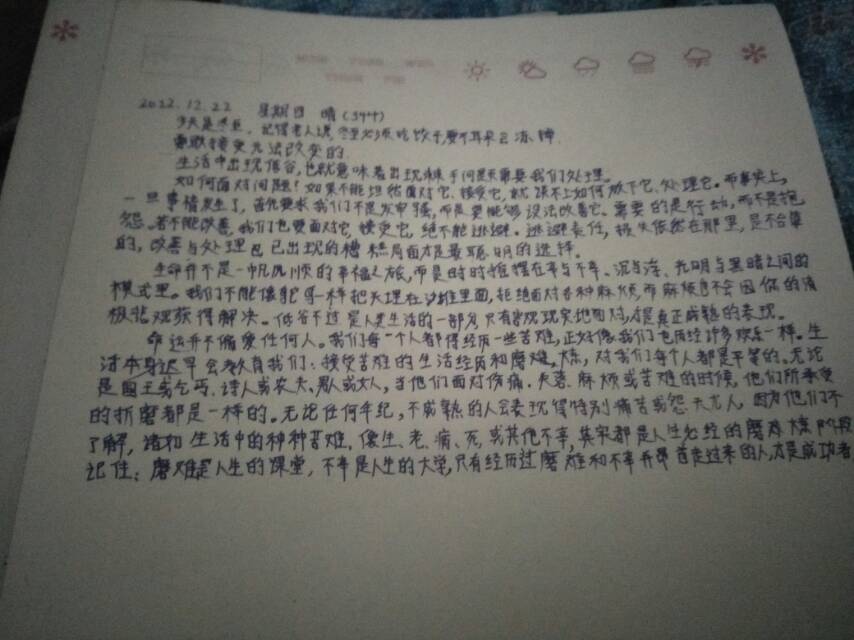 2022.12.22 星期四 晴
今天是冬至, 记得老人说, 冬至必须吃饺子, 要不耳朵会冻掉.
要敢接受无法改变的.
生活中出现低谷, 也就意味着出现棘手问题需要我们处理。
如何面对问题? 如果不能坦然面对它、接受它, 就谈不上如何放下它、处理它。而事实上,
一旦事情发生了, 首先要求我们不是发牢骚, 而是要能够设法改善它。需要的是行动, 而不是抱
怨。若不能改善, 我们也要面对它, 接受它, 绝不能逃避。逃避责任, 损失依然在那里, 是不合算
的, 改善与处理已出现的糟糕局面才是最聪明的选择。
生命并不是一帆风顺的幸福之旅, 而是时时摇摆在幸与不幸、沉与浮、光明与黑暗之间的
模式里。我们不能像鸵鸟一样把头埋在沙堆里面, 拒绝面对各种麻烦, 而麻烦也不会因你的消
极悲观获得解决。低谷不过是人生生活的一部分, 只有客观现实地面对, 才是真正成熟的表现。
命运并不偏爱任何人。我们每一个人都得经历一些苦难, 正好像我们也历经许多欢乐一样。生
活本身迟早会教育我们: 接受苦难的生活经历和磨难, 对我们每个人都是平等的。无论
是国王或乞丐、诗人或农夫、男人或女人, 当他们面对伤痛、失落、麻烦或苦难的时候, 他们所承受
的折磨都是一样的。无论任何年纪, 不成熟的人会表现得特别痛苦或怨天尤人, 因为他们不
了解, 诸如生活中的种种苦难, 像生、老、病、死, 或其他不幸, 其实都是人生必经的磨难阶段
记住: 磨难是人生的课堂, 不幸是人生的大学, 只有经历过磨难和不幸并昂首走过来的人, 才是成功者